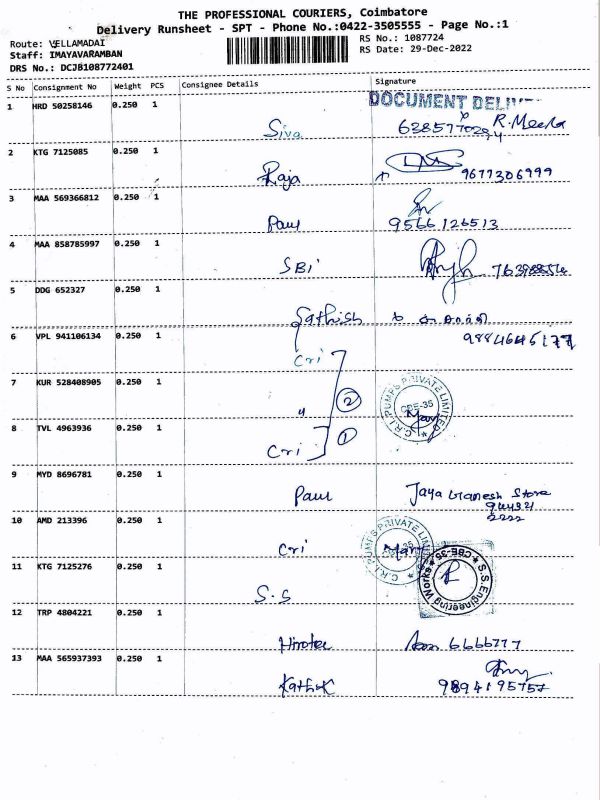 THE PROFESSIONAL COURIERS, Coimbatore
Delivery Runsheet - SPT - Phone No.:0422-3505555 - Page No.:1
Route: VELLAMADAI
RS No.: 1087724
Staff: IMAYAVARAMBAN
RS Date: 29-Dec-2022
DRS No.: DCJB108772401
S No Consignment No Weight PCS Consignee Details Signature
1 HRD 50258146 0.250 1
DOCUMENT DELI
Siva R.Meena
2 KTG 7125085 0.250 1
Raja 9677306999
3 MAA 569366812 0.250 1
Paul 9566126513
4 MAA 858785997 0.250 1
SBi
5 DDG 652327 0.250 1
Sathish
6 VPL 941106134 0.250 1 9884645177
Cri
7 KUR 528408905 0.250 1
" 2
C.R.I. PUMPS PRIVATE LIMITED CBE-35
8 TVL 4963936 0.250 1
Cri 1
9 MYD 8696781 0.250 1
Paul Jaya Ganesh Store
10 AMD 213396 0.250 1
Cri
C.R.I. PUMPS PRIVATE LIMITED
11 KTG 7125276 0.250 1
S.S
S.S.Engineering Works CBE-35
12 TRP 4804221 0.250 1
6666777
13 MAA 565937393 0.250 1
Kathik 9894195757